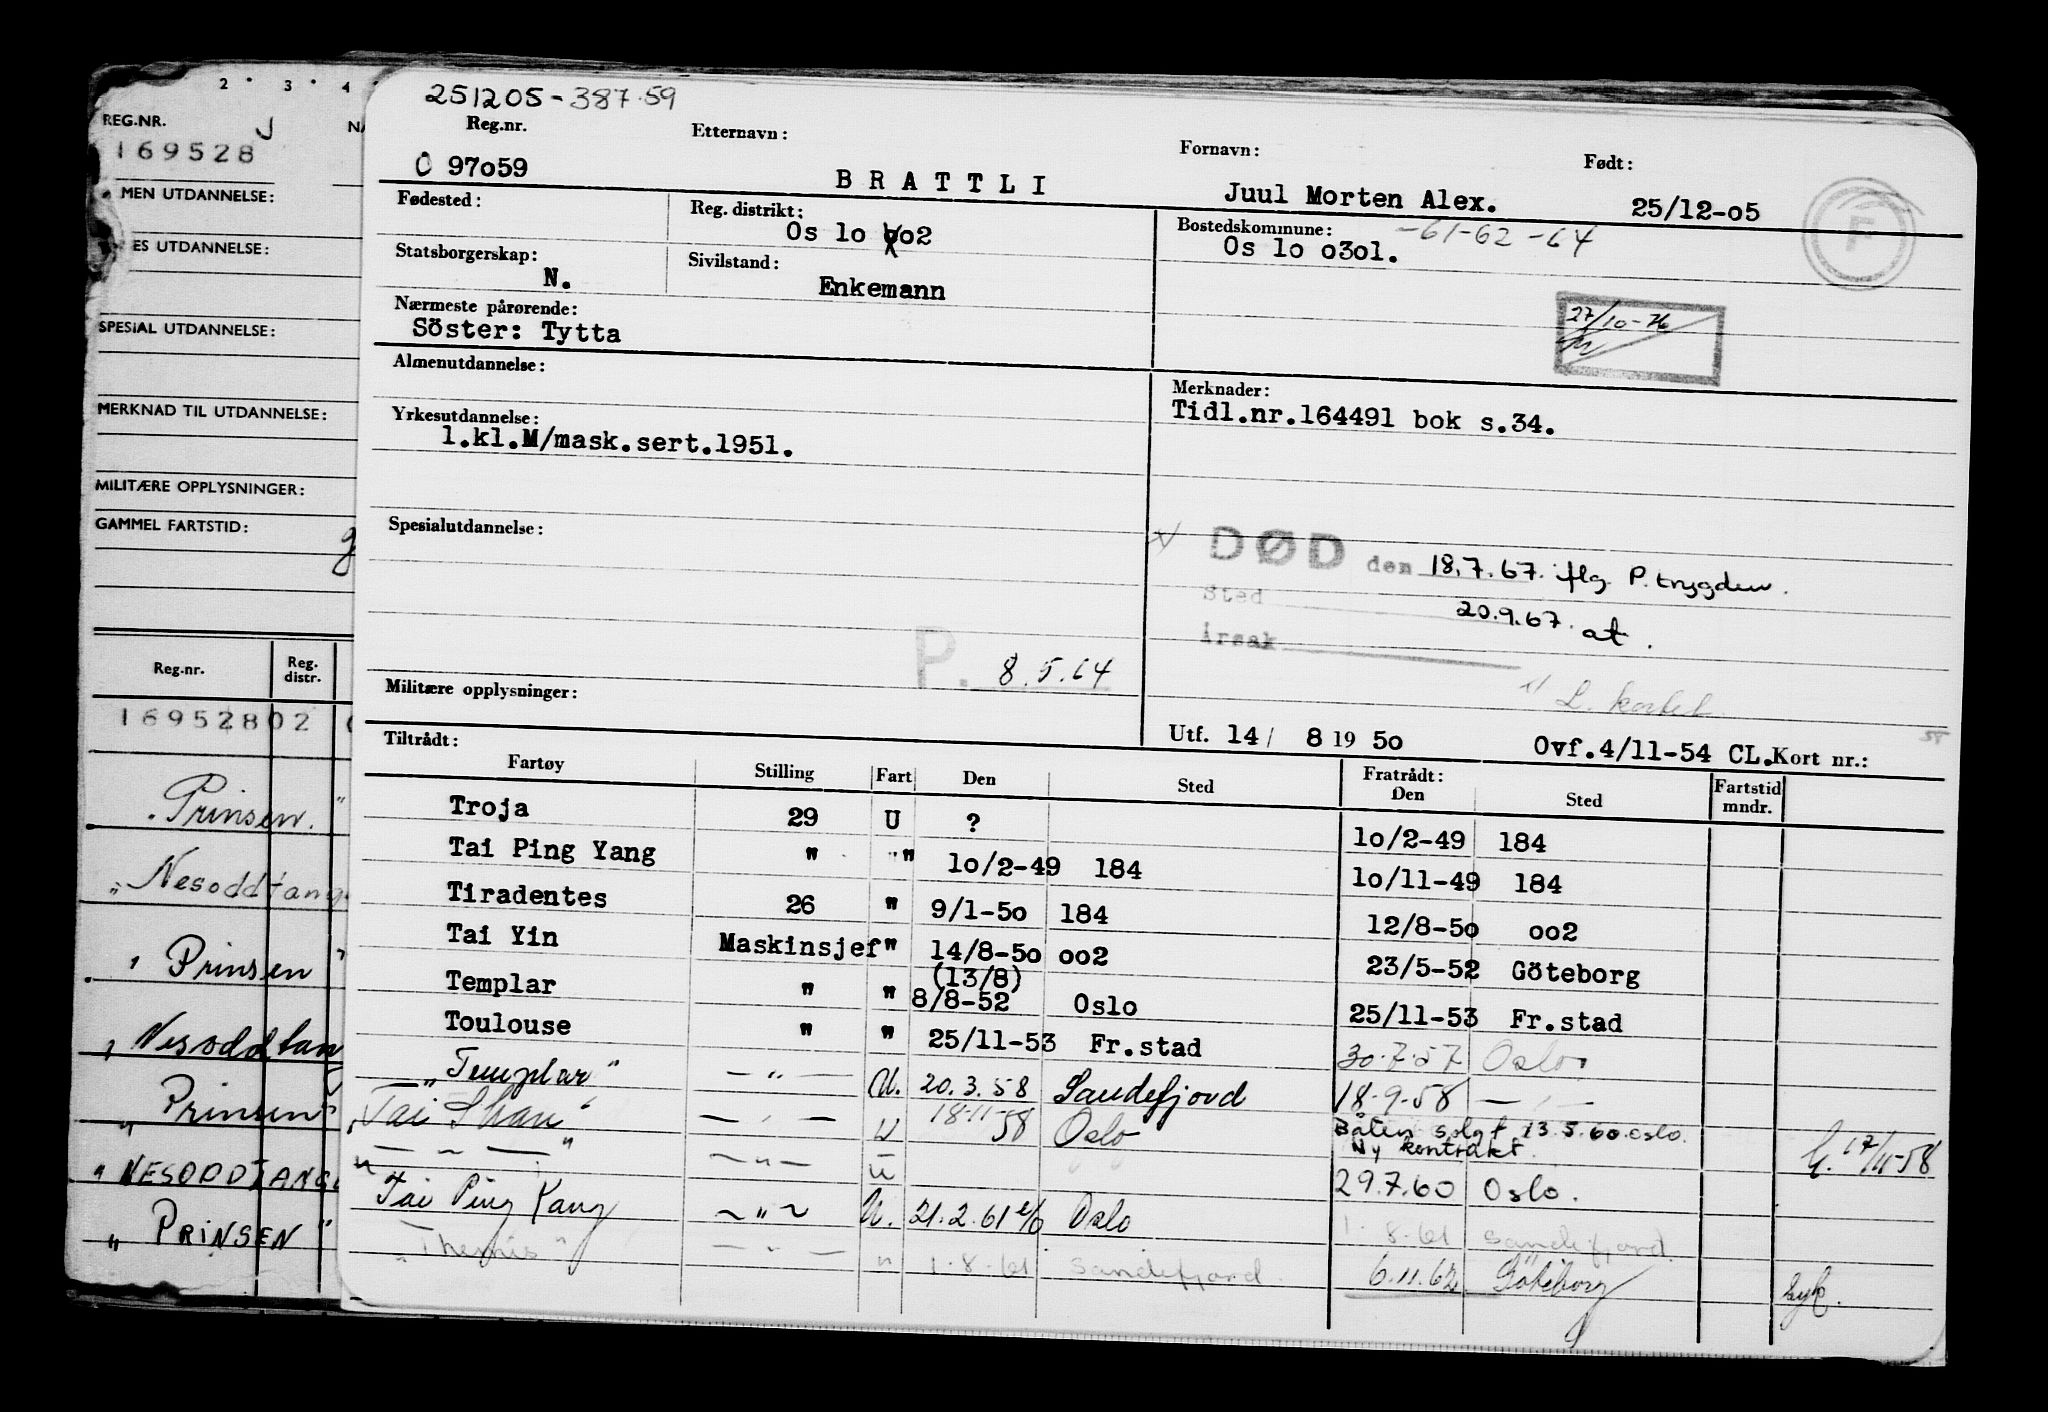 2 3 4
REG.NR.
169528
MEN UTDANNELSE:
ES UTDANNELSE:
SPESIAL UTDANNELSE:
MERKNAD TIL UTDANNELSE:
MILITÆRE OPPLYSNINGER:
GAMMEL FARTSTID:
Reg.nr. Reg. distr.
169528 02
Prinsen
"Nesoddtang
" Prinsen "
" Nesoddtan
" Prinsen "
" NESODDTANG
" PRINSEN "
251205-387.59
Reg.nr. Etternavn: Fornavn: Født:
97o59 BRATTLI Juul Morten Alex. 25/12-o5
Fødested: Reg. distrikt: Bostedskommune: -61-62-64
Os lo oo2 Os lo o3o1.
Statsborgerskap: Sivilstand:
N. Enkemann
Nærmeste pårørende:
Söster: Tytta
27/10-76
F
Almenutdannelse: Merknader:
Tidl.nr.164491 bok s.34.
Yrkesutdannelse:
1.kl.M/mask.sert.1951.
Spesialutdannelse:
DØD den 18.7.67. flg. P.trygden.
Sted 20.9.67. at.
Årsak
P. 8.5.64
Militære opplysninger:
L. kortet
Utf. 14/ 8 19 5o Ovf.4/11-54 CL. Kort nr.:
58
Tiltrådt: Fratrådt:
Fartøy Stilling Fart Den Sted Den Sted Fartstid mndr.
Troja 29 U ? 1o/2-49 184
Tai Ping Yang " " 1o/2-49 184 1o/11-49 184
Tiradentes 26 " 9/1-5o 184 12/8-5o oo2
Tai Yin Maskinsjef " 14/8-5o oo2 23/5-52 Göteborg
Templar " " (13/8) 8/8-52 Oslo 25/11-53 Fr.stad
Toulouse " " 25/11-53 Fr.stad 30.7.57 Oslo
"Templar" — " — U. 20.3.58 Sandefjord 18.9.58 — " —
"Tai Shan" — " — U 18.11.58 Oslo Båten solgt 13.5.60. oslo. Ny kontrakt. 17/11-58
" — " — " — " — U 29.7.60 Oslo.
Tai Ping Yang — " — U. 21.2.61 Oslo 1.8.61 Sandefjord.
"Themis" — " — " 1.8.61 Sandefjord. 6.11.62. Göteborg